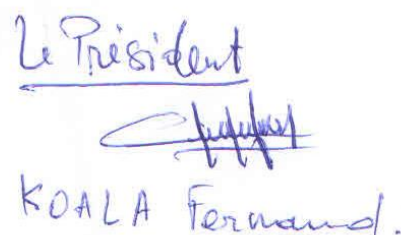 Le Président
KOALA Fernand.